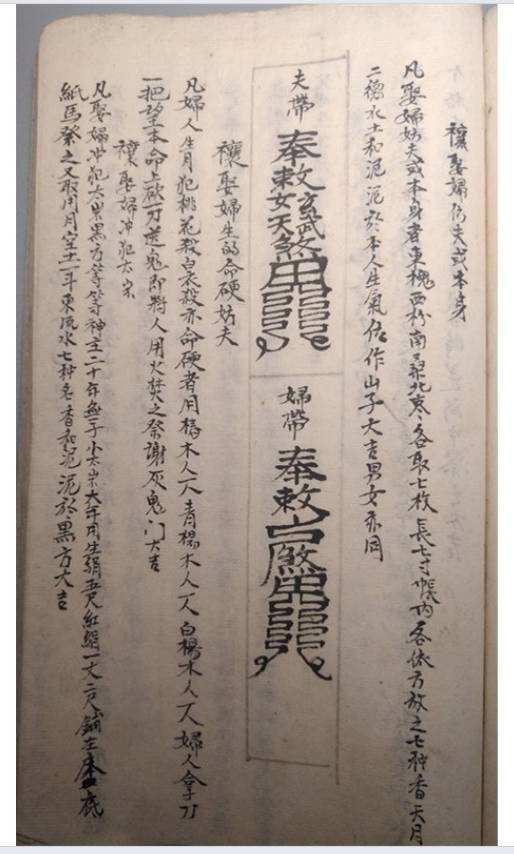 禳娶婦妨夫或本身
凡娶婦妨夫或本身者東槐西柳南棗北棗各取七枚長七寸帳內各依方放之七种香天月
二德水土和泥泥於本人生氣位作山子大吉男女亦同
夫帶
奉敕玄武女天煞
婦帶
奉敕
禳娶婦生的命硬妨夫
凡婦人生月犯桃花殺白衣殺亦命硬者用楊木人一个青楊木人一个白楊木人一个婦人拿刀
一把望本命上砍一刀送鬼即將人用火焚之祭謝灰鬼门大吉
禳娶婦冲犯太
凡娶婦冲犯太黑方等神主二十年無子小太大年用生絹五尺紅絹一丈二尺鋪在床底
紙馬祭之又取用月空土一斗東流水七种名香和泥泥於黑方大吉